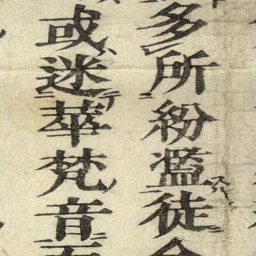 多所紛濫徒
或迷華梵音